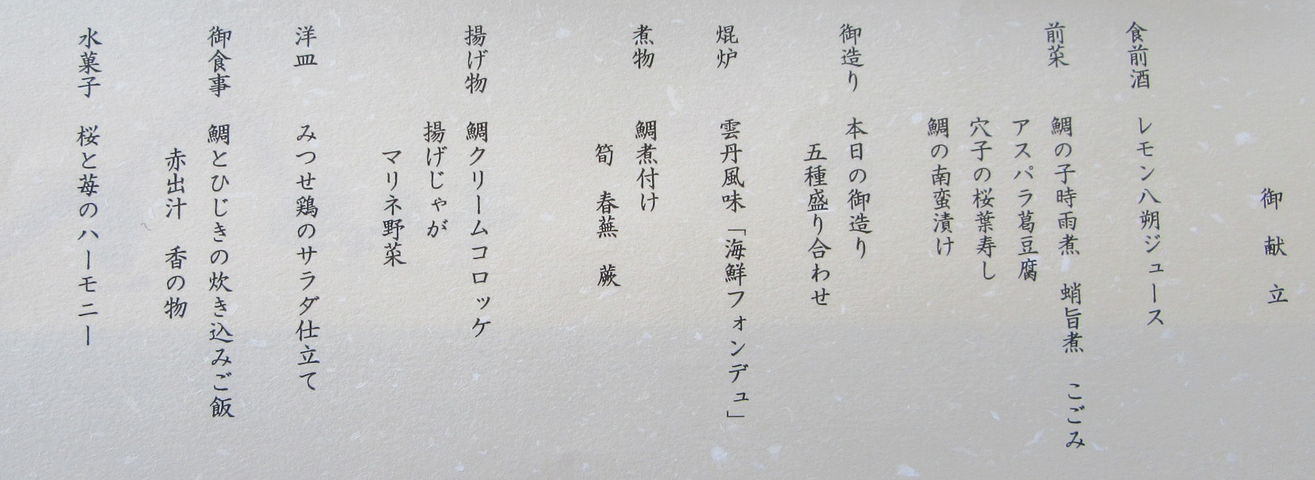 御献立
食前酒　レモン八朔ジュース
前菜　鯛の子時雨煮　蛸旨煮　こごみ
アスパラ葛豆腐
穴子の桜葉寿し
鯛の南蛮漬け
御造り　本日の御造り
五種盛り合わせ
焜炉　雲丹風味「海鮮フォンデュ」
煮物　鯛煮付け
筍　春蕪　蕨
揚げ物　鯛クリームコロッケ
揚げじゃが
マリネ野菜
洋皿　みつせ鶏のサラダ仕立て
御食事　鯛とひじきの炊き込みご飯
赤出汁　香の物
水菓子　桜と苺のハーモニー